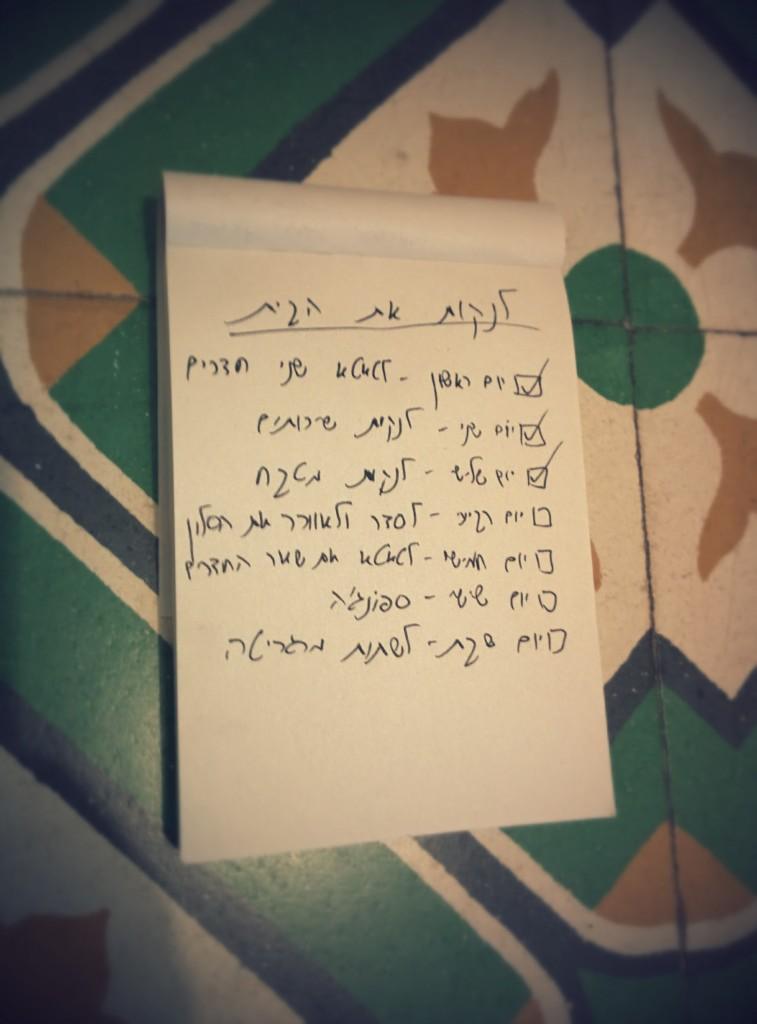 לנקות את הבית
יום ראשון - לטאטא שני חדרים
יום שני - לנקות שירותים
יום שלישי - לנקות מטבח
יום רביעי - לסדר ולאוורר את הסלון
יום חמישי - לטאטא את שאר החדרים
יום שישי - ספונג'ה
יום שבת - לשתות מרגריטה